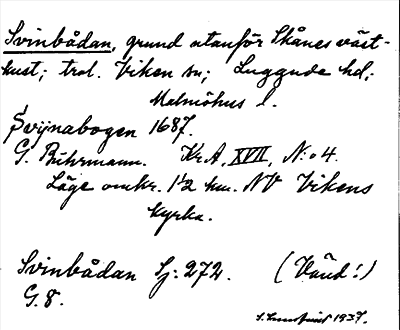 Svinbådan, grund utanför Skånes väst-
kust; trol. Viken sn; Luggude hd,
Malmöhus l.
Svijnabogen 1687.
G. Buhrmann. Kr.A, XVII, N:o 4.
Läge omkr. 1½ km. NV Vikens
kyrka.
Svinbådan Sj: 272. (Vänd!)
G. 8.
1937.